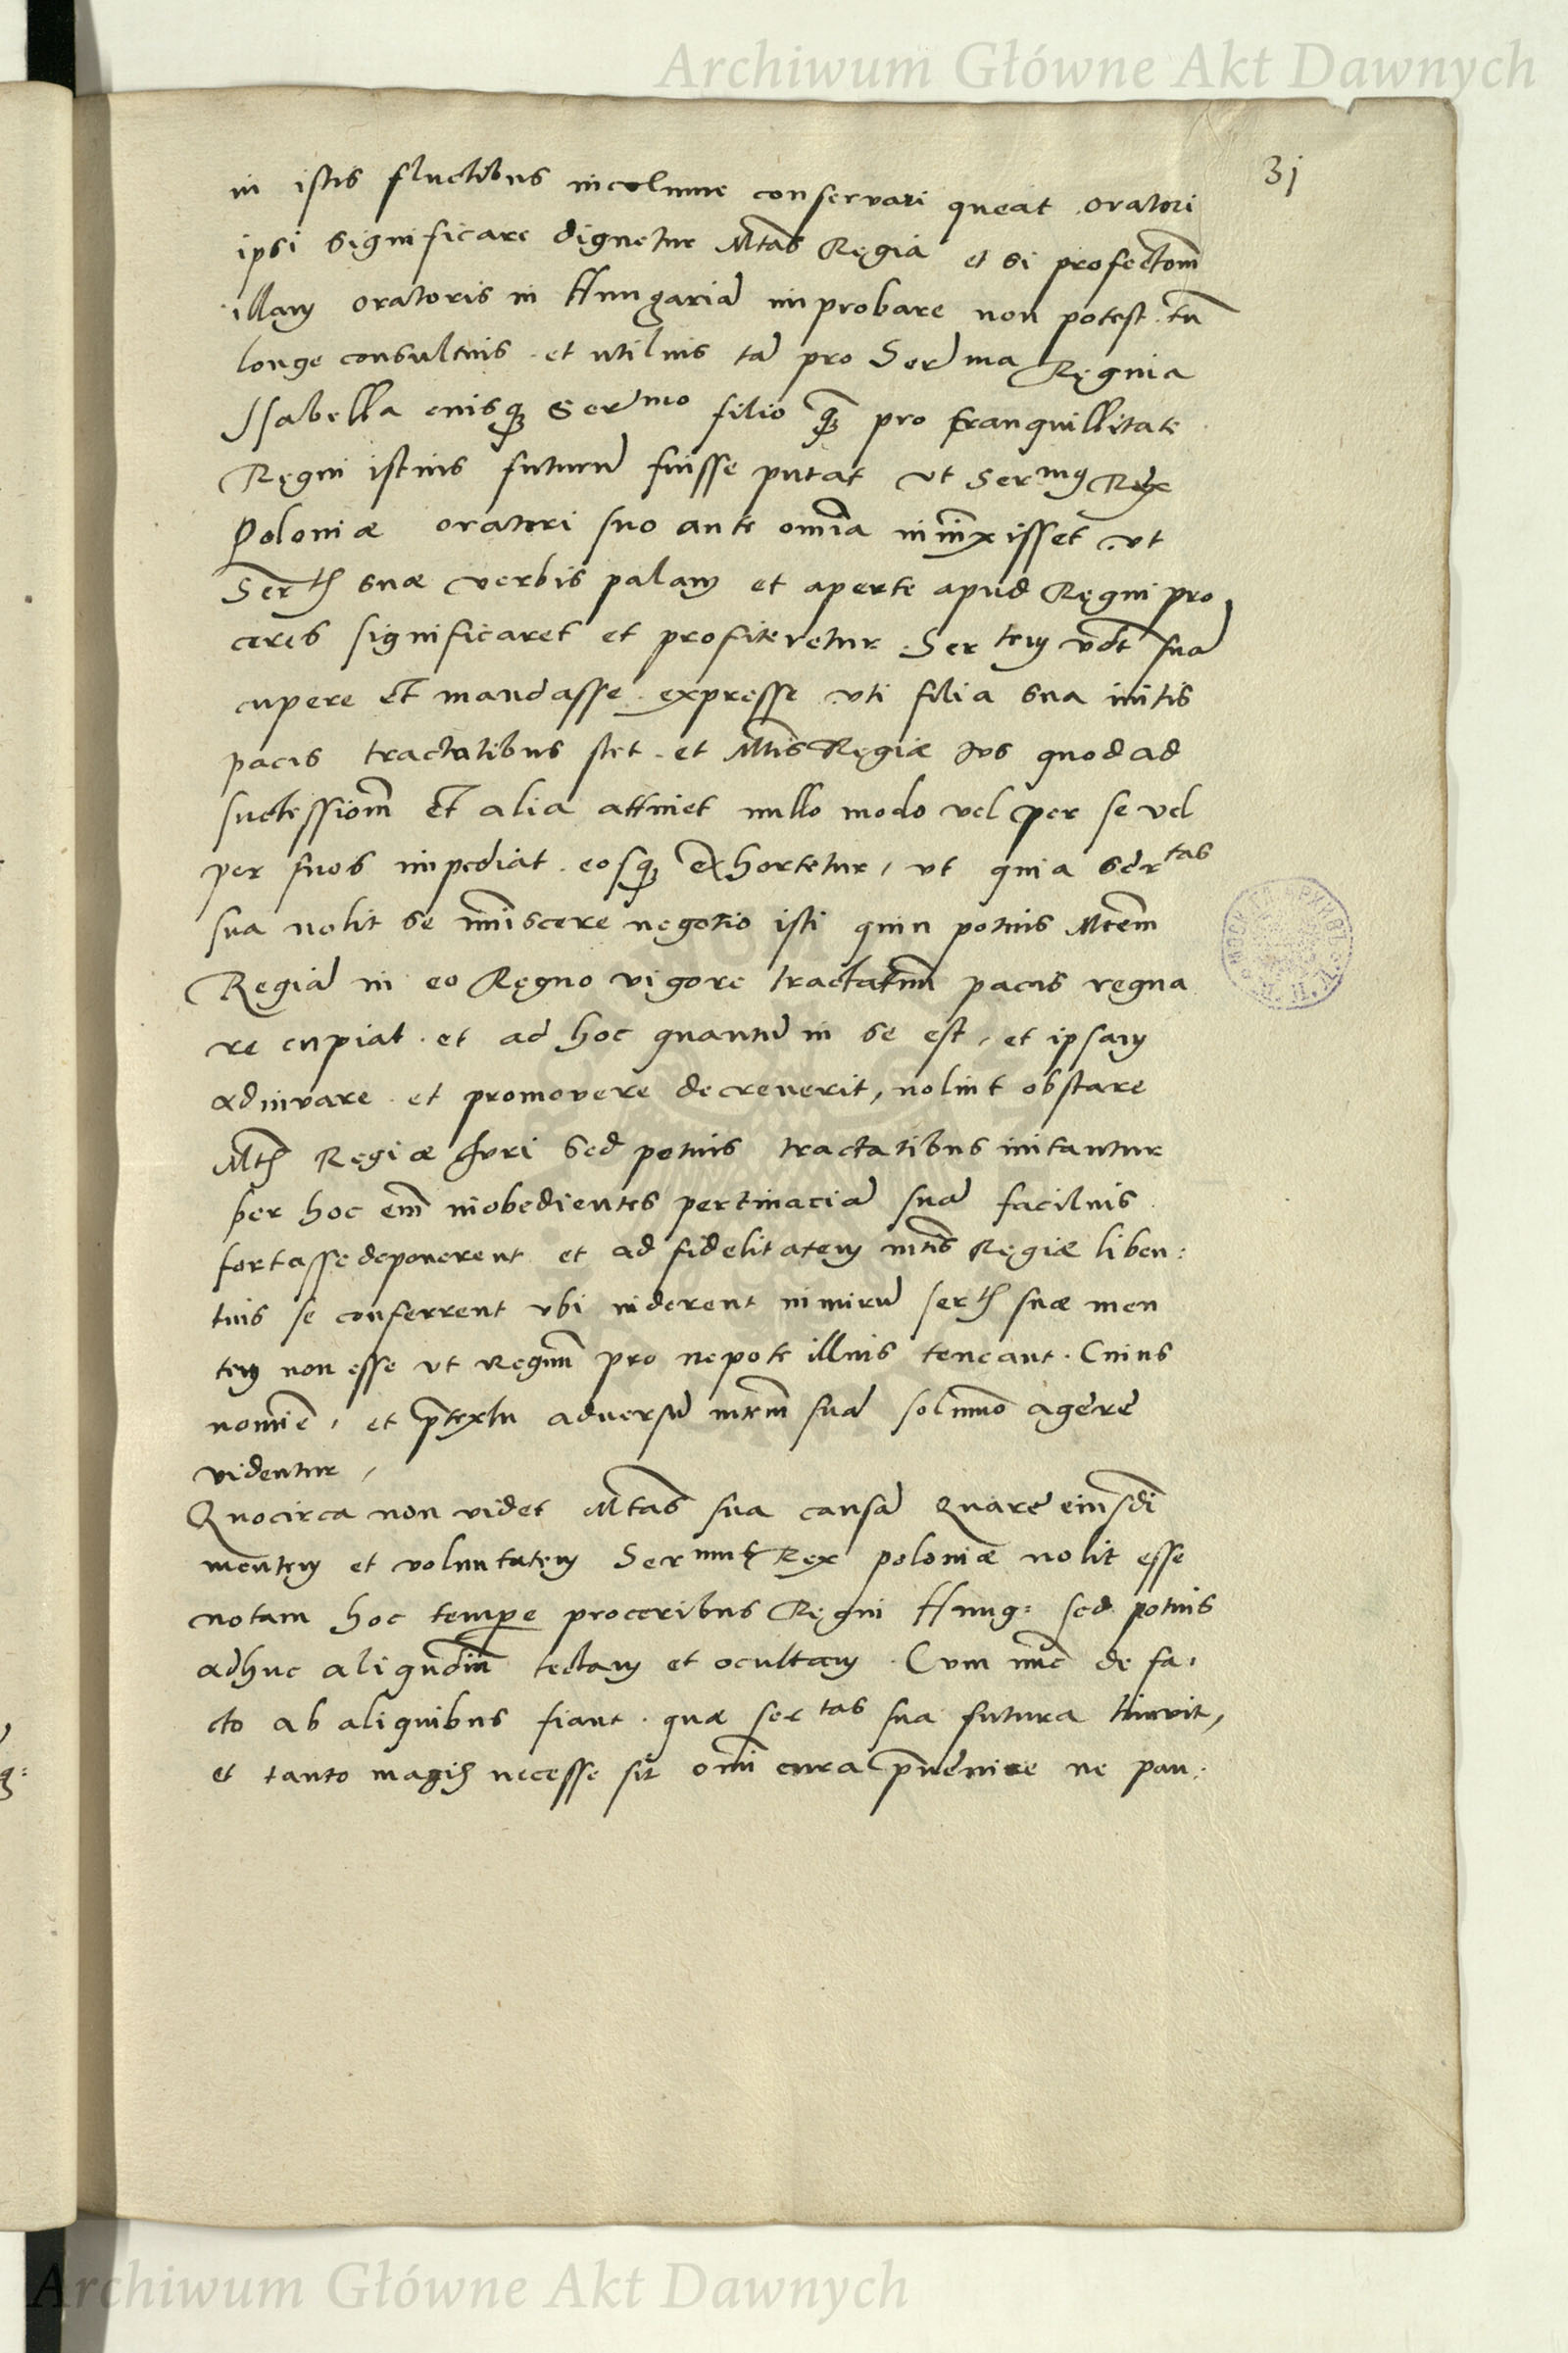 Archiwum Główne Akt Dawnych
31
in istis fluctibus incolume conservari queat oratori
ipsi significare dignetur Mtas Regia et si profectom̃
illam oratoris in Hungariã improbare non potest tñ
longe consultius et utilius tã pro Serma Regina
Isabella eiusq; Sermo filio q̃ pro tranquillitate
Regni istius futurũ fuisse putat ut Sermus Rex
Poloniæ oratori suo ante omĩa iniũxisset ut
Sertis suæ verbis palam et aperte apud Regni pro
ceres significaret et profiteretur Sertem vdt̃ suã
cupere et mandasse expresse uti filia sua initis
pacis tractatibus stet et Mtis Regiæ ius quod ad
successiom̃ et alia attinet nullo modo vel per se vel
per suos impediat eosq; exhortetur, ut quia Sertas
sua nolit se imiscere negotio isti quin potius Mtem
Regiã in eo Regno vigore tractatuũ pacis regna
re cupiat et ad hoc quantũ in se est, et ipsam
adiuvare et promovere decreverit, nolint obstare
Mtis Regiæ Iuri sed potius tractatibus initantur
per hoc em̃ inobedientes pertinaciã suã facilius
fortasse deponerent et ad fidelitatem mtis Regiæ liben:
tius se conferrent ubi viderent nimirũ sertis suæ men
tem non esse ut Regnũ pro nepote illius teneant. Cuius
nomiẽ, et p̃textu adversũ mtem suã solummõ agere
videntur,
Quocirca non videt Mtas sua causã quare eiusdẽ
mentem et voluntatem Sermus Rex poloniæ nolit esse
notam hoc tempe proceribus Regni Hung: sed potius
adhuc aliqũdiu tectam et ocultam. Cum nũc de fa,
cto ab aliquibus fiant quæ sertas sua futura timuit,
et tanto magis necesse sit om̃i cura p̃venire ne pau:
Archiwum Główne Akt Dawnych